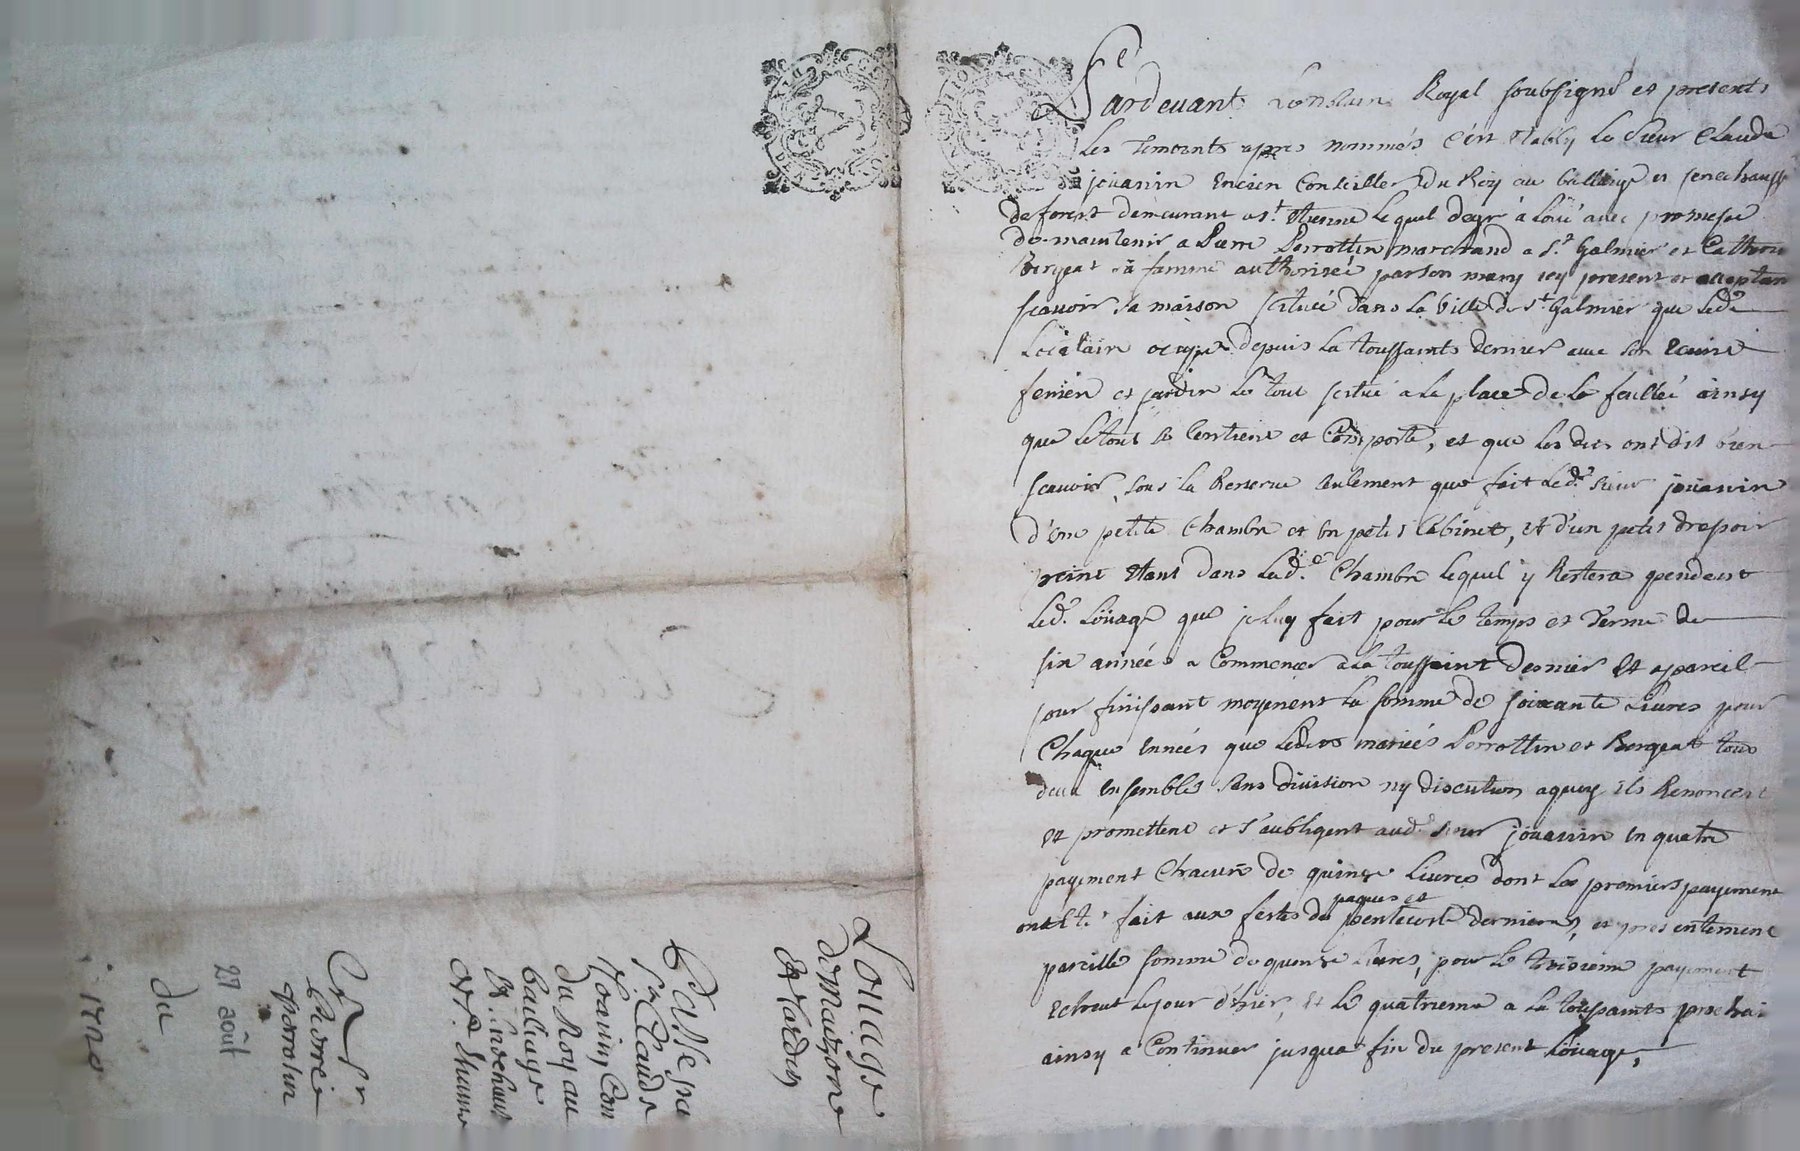 Pardevant Le Notaire Royal soubsigné et presents
les temoints apres nommés c'est étably le Sieur Claude
jouanin encien Conseiller du Roy au balliage et senechaussé
de forest demeurant a St. Etienne lequel de gré à loué avec promesse
de maintenir a Pierre Perrottin marchand a St. Galmier et Catherine
Bergeat sa famme authorisée par son mary icy present et acceptan
scavoir sa maison scituée dans la Ville de St Galmier que led.
Locataire ocupe depuis la toussaints dernier avec son ecurie
feniere et jardin le tout scitué a la place de la feullée ainsy
que le tout se Contient et Comporte, et que les dits ont dit bien
scavoir, sous la Reserve seulement que fait led. sieur jouanin
d'une petite chambre et un petit Cabinet, et d'un petit drepoir
peint etant dans lad.e Chambre lequel y Restera pendant
led. Loüage que je luy fait pour le temps et terme de
six années a Commencer a la toussaint dernier et a pareil
jour finissant moyenent la somme de soixante Livres pour
Chaque année que lesdits mariés Perrottin et Bergeat tous
deux ensembles sans division ny discution aquoy ils Renoncent
et promettent et s'aubligent aud. sieur jouanin en quatre
payement Chacun de quinze Livres dont les premiers payement
ont Et. fait aux festes de paques et pentecoste dernieres, et presentement
pareille somme de quinze Livres, pour le troisieme payement
echeut le jour d'hier, et le quatrieme a la toussaints prochai
ainsy a Continuer jusqua fin du present Loüage,
Louage
de Maizon
et Jardin
Passe par
Sr. Claude
Jouanin Con
du Roy au
bailiage
et senechaus
A Sr
Pierre
Perrotin
du
27 août
1720